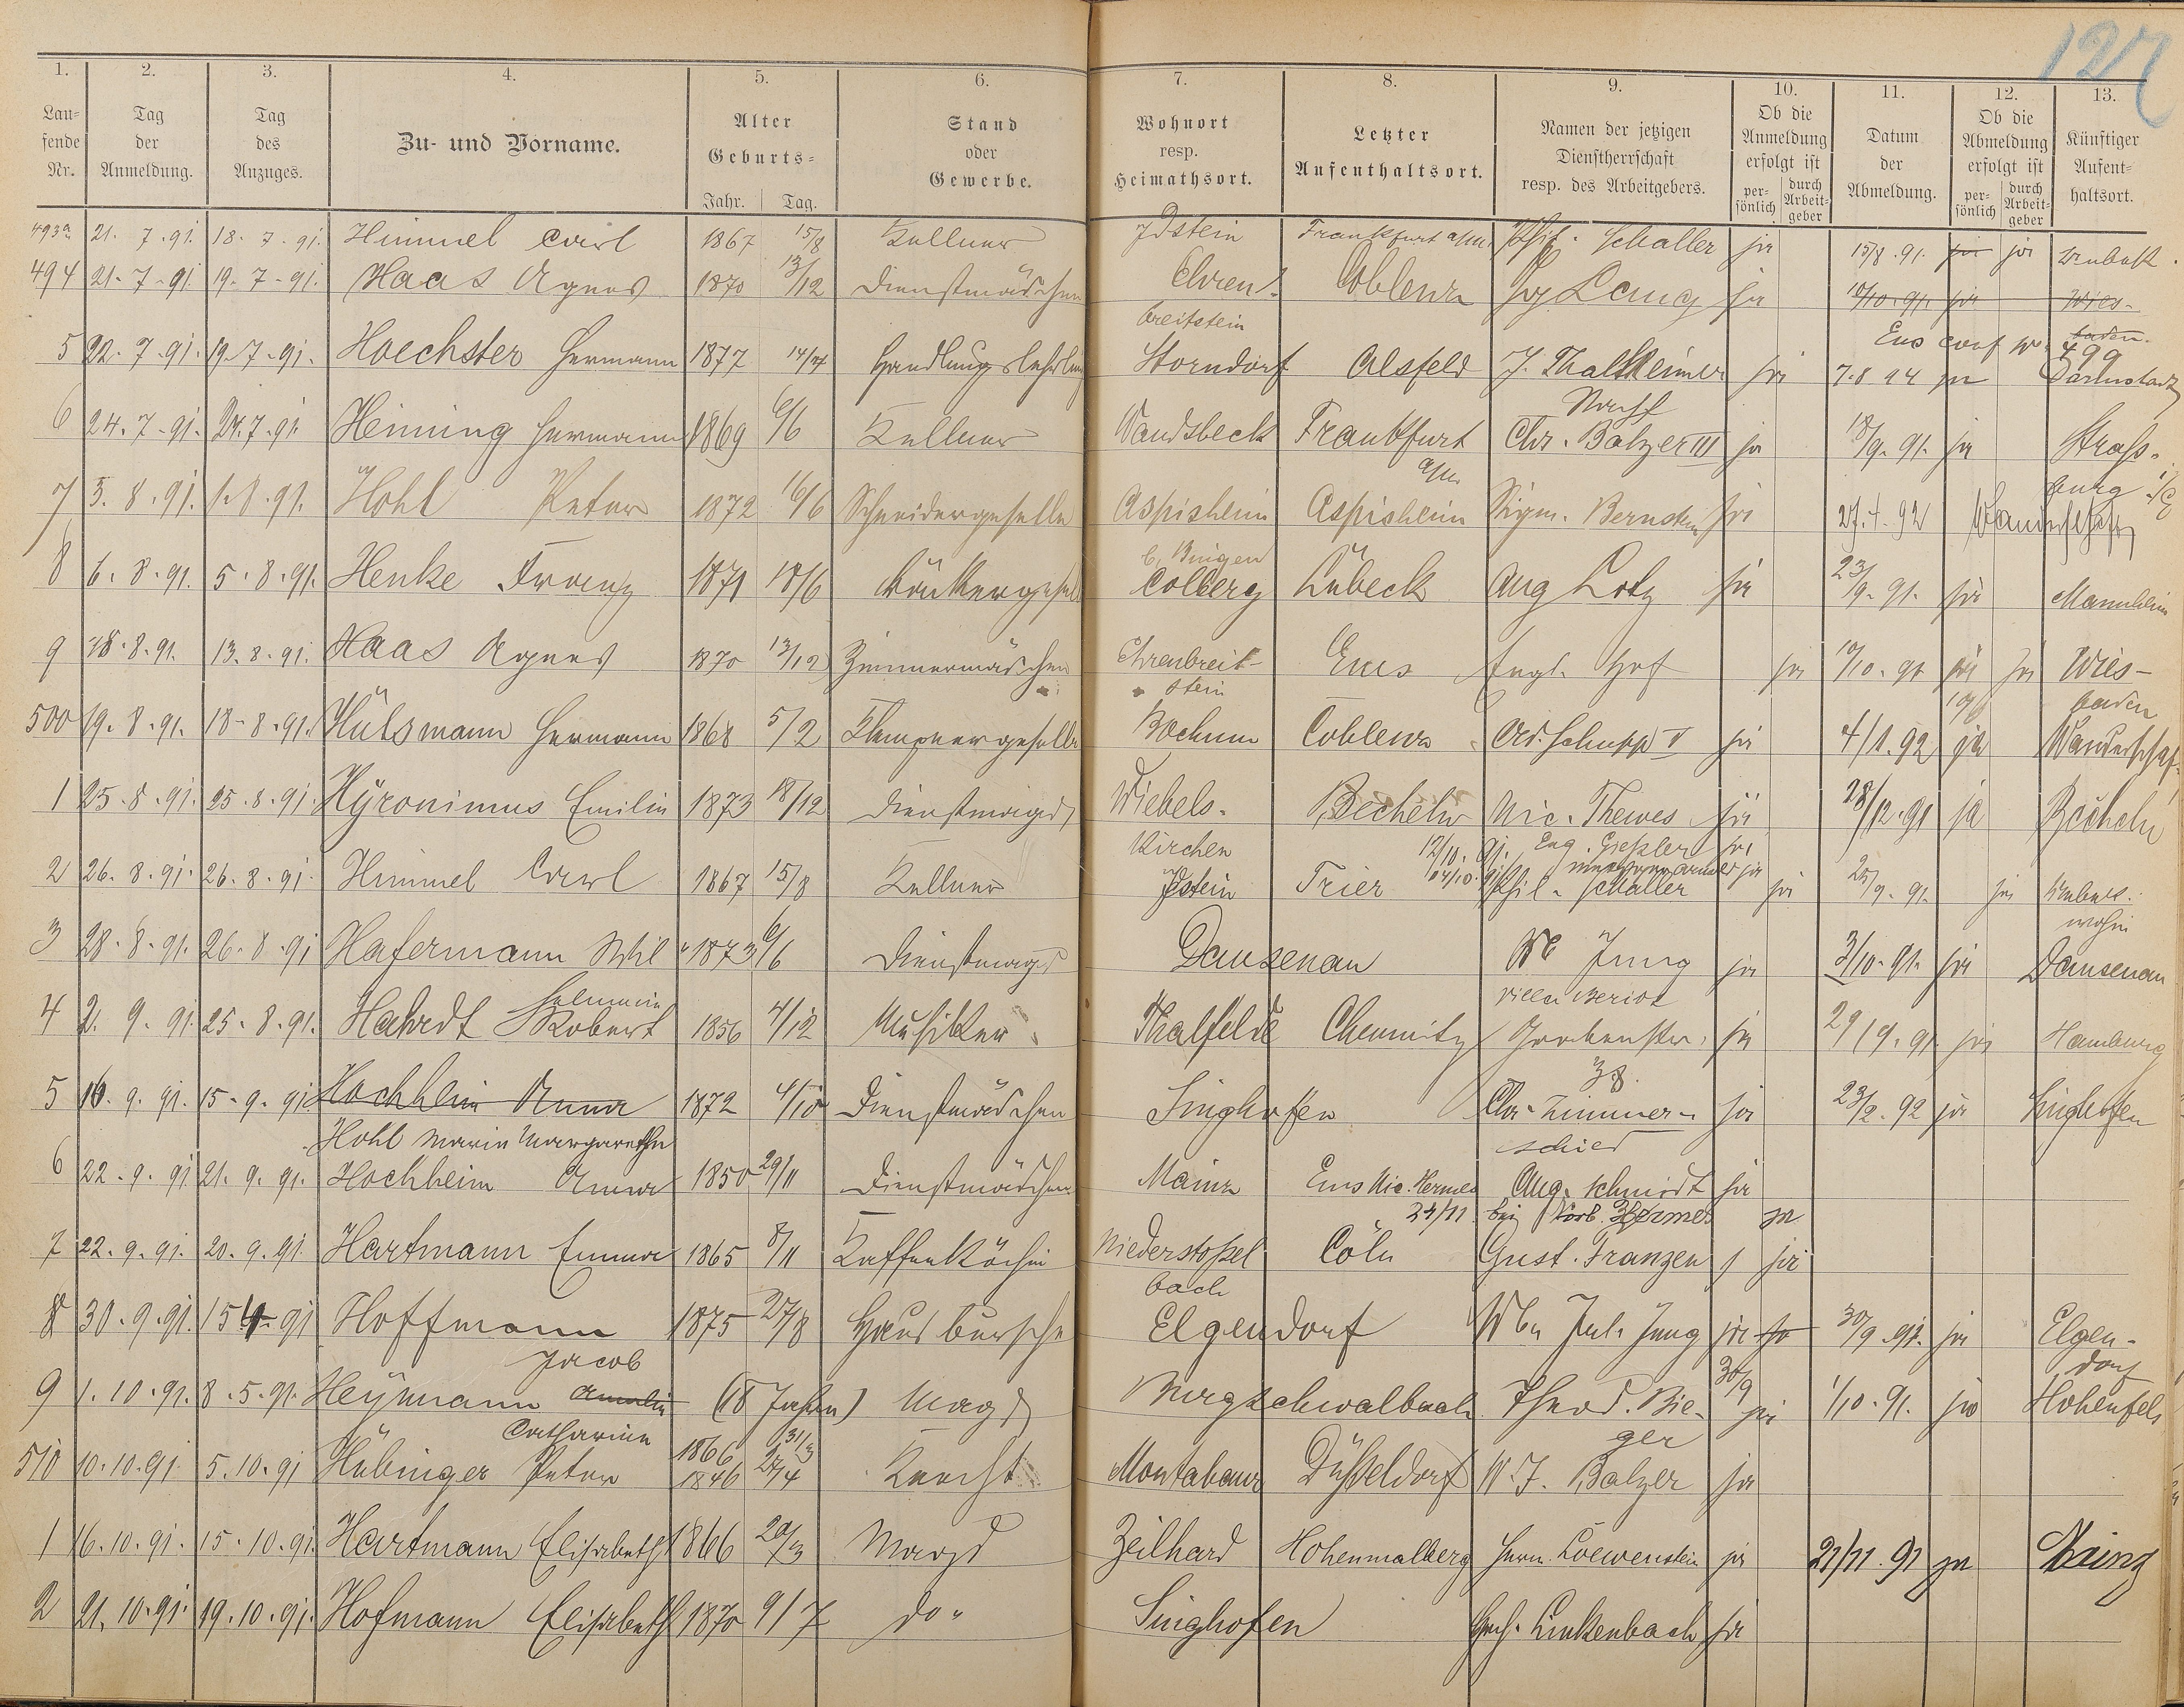 127
1. 2. 3. 4. 5. 6. 7. 8. 9. 10. 11. 12. 13.
Lau-
fende
Nr.
Tag
der
Anmeldung.
Tag
des
Anzuges.
Zu- und Vorname.
Alter
Geburts-
Jahr. Tag.
Stand
oder
Gewerbe.
Wohnort
resp.
Heimathsort.
Letzter
Aufenthaltsort.
Namen der jetzigen
Dienstherrschaft
resp. des Arbeitgebers.
Ob die
Anmeldung
erfolgt ist
per-
sönlich
durch
Arbeit-
geber
Datum
der
Abmeldung.
Ob die
Abmeldung
erfolgt ist
per-
sönlich
durch
Arbeit-
geber
Künftiger
Aufent-
haltsort.
493a 21. 7. 91. 18. 7. 91. Himmel Carl 1867 15/8 Kellner Idstein Frankfurt a/M. Phil. Schaller ja 15/8. 91. ja ja unbek.
494 21. 7. 91. 19. 7. 91. Haas Agnes 1870 13/12 Dienstmädchen Ehren- Coblenz Jos Lang ja 10/10. 91. ja Wies-
breitstein baden.
499
5 22. 7. 91. 19. 7. 91. Hoechster Hermann 1877 14/4 Handlungslehrling Storndorf Alsfeld J. Thalheimer ja 7. 8 94 ja Darmstadt
6 24. 7. 91. 24. 7. 91. Heining Hermann 1869 6/6 Kellner Wandsbeck Frankfurt Chr. Balzer III ja 18/9. 91. ja Straß-
a/M. burg i/E
7 5. 8. 91. 1. 8. 91. Hohl Peter 1872 16/6 Schneidergeselle Aspisheim Aspisheim Sigm. Bernstein ja 27. 4. 92 Wanderschaft
b. Bingen
8 6. 8. 91. 5. 8. 91. Henke Franz 1871 18/6 Bäckergeselle Colberg Lübeck Aug Lotz ja 23/9. 91. ja Mannheim
9 18. 8. 91. 13. 8. 91. Haas Agnes 1870 13/12 Zimmermädchen Ehrenbreit- Ems Engl. Hof ja 10/10. 91 ja ja Wies-
stein baden
500 19. 8. 91. 18. 8. 91. Hülsmann Hermann 1868 5/2 Klempnergeselle Bochum Coblenz Ad. Schupp V ja 4/1. 92 ja Wanderschaft
1 25. 8. 91. 25. 8. 91. Hyronimus Emilie 1873 18/12 Dienstmagd Wiebels- Becheln Nic. Thewes ja 28/12. 91 ja Becheln
kirchen 12/10. 91. Eug. Geßler ja
2 26. 8. 91. 26. 8. 91. Himmel Carl 1867 15/8 Kellner Idstein Trier Phil. Schaller ja 25/9. 91. ja unbek.
wohin
3 28. 8. 91. 26. 8. 91 Hafermann Wil- 1873 6/6 Dienstmagd Dausenau We Jung ja 3/10. 91. ja Dausenau
helmine Villa Beriot
4 2. 9. 91. 25. 8. 91. Hahrdt Robert 1856 4/12 Musiker Thalfelde Chemnitz Grabenstr. ja 29/9. 91. ja Hamburg
38.
5 16. 9. 91. 15. 9. 91 Hochheim Anna 1872 4/10 Dienstmädchen Singhofen Chr. Zimmer- ja 23/2. 92 ja Singhofen
Hohl Marie Margarethe schied
6 22. 9. 91 21. 9. 91. Hochheim Anna 1850 29/11 Dienstmädchen Mainz Ems Nic. Hermes Aug. Schmidt ja
24/11. bei Hermes ja
7 22. 9. 91. 20. 9. 91. Hartmann Emma 1865 8/11 Kaffeeköchin Niederstoßel Cöln Gust. Franzen ja
bach
8 30. 9. 91. 15 4. 91 Hoffmann 1875 27/8 Hausbursche Elgendorf Wbe Jul. Jung ja ja 30/9. 91. ja Elgen-
Jacob 30/9 dorf
9 1. 10. 91. 8. 5. 91. Heymann Amalie (18 Jahre) Magd Burgschwalbach Theod. Bie- ja 1/10. 91. ja Hohenfels
Catharine 1866 31/3 ger
510 10. 10. 91. 5. 10. 91 Hübinger Peter 1846 27/4 Knecht Montabaur Düßeldorf W. J. Balzer ja
1 16. 10. 91. 15. 10. 91. Hartmann Elisabeth 1866 20/3 Magd Zeilhard Hohenmalberg Herm. Loewenstein ja 21/11. 91 ja Mainz
2 21. 10. 91. 19. 10. 91. Hofmann Elisabeth 1870 9/7 do. Singhofen Gch. Linkenbach ja